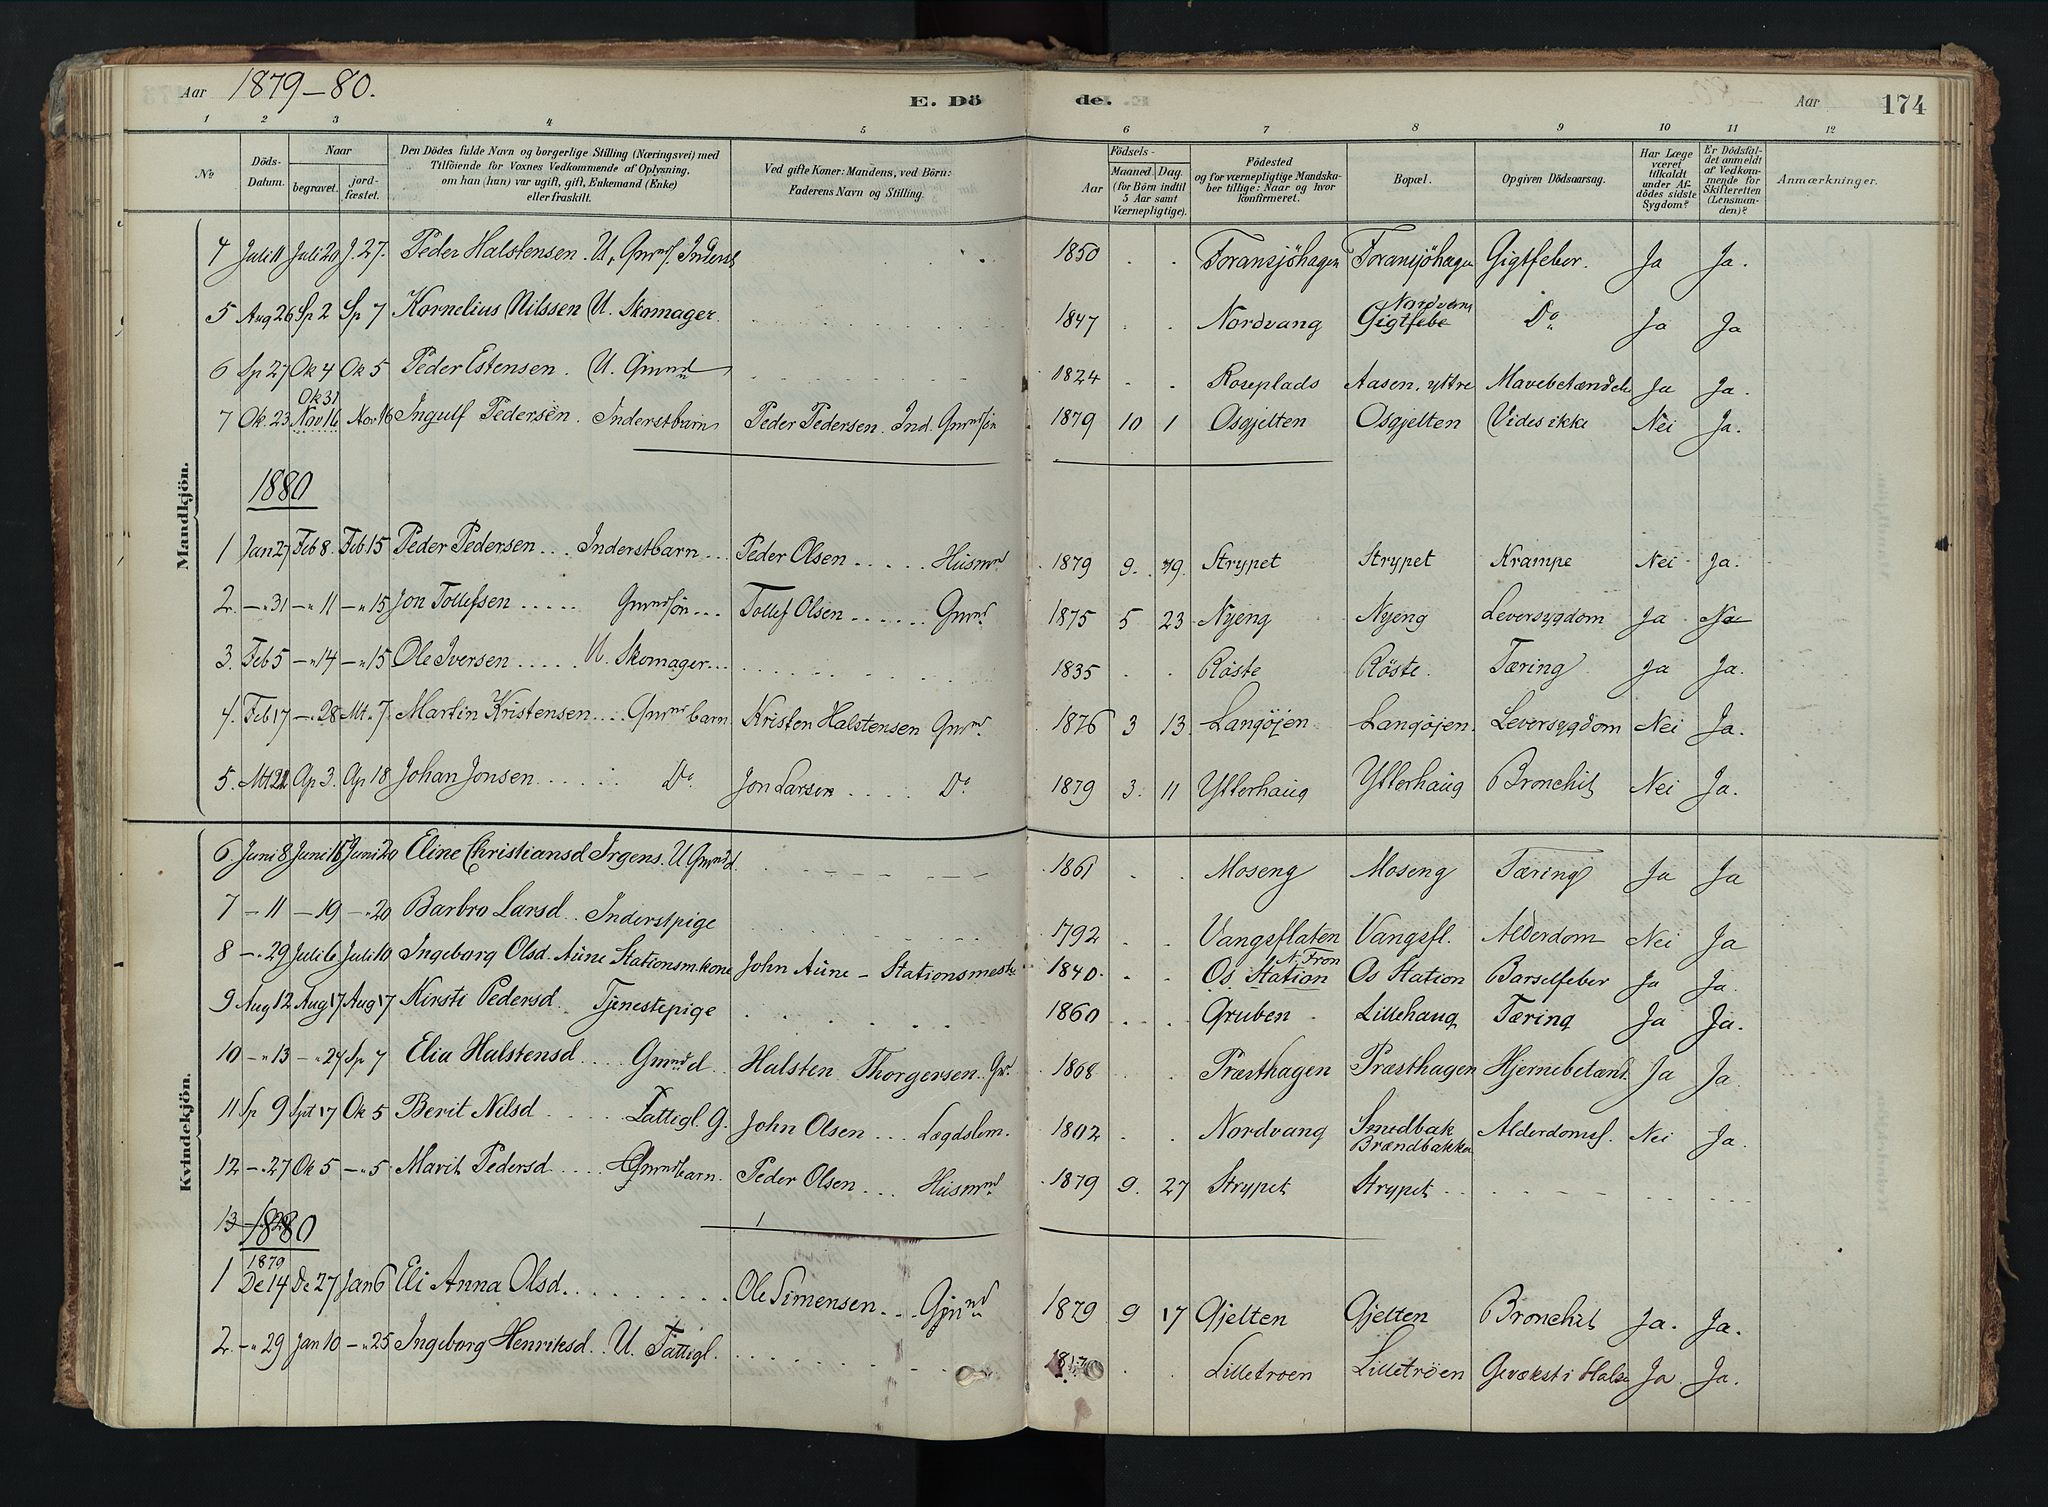 Aar 1879-80. E. Dö de. Aar 174
1 2 3 4 5 6 7 8 9 10 11 12
No Döds-Datum. Naar begravet. jord-fæstet. Den Dödes fulde Navn og borgerlige Stilling (Næringsvei) med Tilföiende for Voxnes Vedkommende af Oplysning, om han (hun) var ugift, gift, Enkemand (Enke) eller fraskilt. Ved gifte Koner: Mandens, ved Börn: Faderens Navn og Stilling. Födsels- Aar Maaned Dag (for Börn indtil 5 Aar samt Værnepligtige). Födested og for værnepligtige Mandskaber tillige: Naar og hvor konfirmeret. Bopæl. Opgiven Dödsaarsag. Har Læge været tilkaldt under Afdödes sidste Sygdom? Er Dödsfaldet anmeldt af Vedkommende for Skifteretten (Lensmanden)? Anmærkninger.
Mandkjön.
4 Juli 11 Juli 20 J. 27. Peder Halstensen. U. Gmds. Inderst 1850 Foransjöhagen Foransjöhagen Gigtfeber. Ja Ja.
5 Aug 26 Sp 2 Sp 7 Kornelius Nilssen U. Skomager 1847 Nordvang Nordvang Gigtfebe Do Ja Ja
6 Sp 27 Ok 4 Ok 5 Peder Estensen. U. Gmnd 1824 Roseplads Aasen, yttre Mavebetændels Ja Ja.
7 Ok. 23 Ok 31 Nov 16 Nov 16 Ingulf Pedersen Inderstbarn Peder Pedersen. Ind. Gmdsön 1879 10 1 Osgjelten Osgjelten Vides ikke Nei Ja.
1880
1 Jan 27 Feb 8. Feb 15 Peder Pedersen Inderstbarn Peder Olsen Husmd 1879 9. 19. Strypet Strypet Krampe Nei Ja.
2. -"31 -"11 -"15 Jon Tollefsen Gmndsön Tollef Olsen Gmd 1875 5 23 Nyeng Nyeng Leversygdom Ja
3. Feb 5 -"14 -"15 Ole Iversen U. Skomager 1835 Röste Röste. Tæring Ja Ja.
4. Feb 17 -"28 Mt. 7 Martin Kristensen Gmndbarn Kristen Halstensen Gmd 1876 3 13 Langöjen Langöjen. Leversygdom Nei Ja.
5. Mt 21 Ap 3. Ap 18 Johan Jonsen Do Jon Larsen Do 1879 3. 11 Ytterhaug Ytterhaug Bronchit Nei Ja.
Kvindekjön.
6. Juni 8 Juni 15 Juni 20 Eline Christiansd Irgens. U Gmd d. 1861 Moseng Moseng Tæring Ja Ja
7 -11 -19 -"20 Barbro Larsd. Inderstpige 1792 Vangsflaten Vangsfl. Alderdom Nei Ja
8 -"29 Juli 6 Juli 10 Ingeborg Olsd. Aune Stationsm.kone John Aune - Stationsmeste 1840. N. Fron Os Station Os Station Barselfeber Ja Ja.
9 Aug 12 Aug 17 Aug 17 Kirsti Pedersd. Tjenestepige 1860 Gruben Lillehaug Tæring Ja Ja.
10 -"13 -"24 Sp 7 Elia Halstensd Gmnd d Halsten Thorgersen Gmd. 1868 Præsthagen Præsthagen Hjernebetænd. Ja Ja.
11 Sp 9 Spt 17 Ok 5 Berit Nilsd Fattigl. G. John Olsen Lægdslem. 1802 Nordvang Smedbak Brændbakken Alderdomss. Nei Ja.
12 -"27 Ok 5 -"5 Marit Pedersd Gmndbarn. Peder Olsen Husmnd 1879 9. 27 Strypet Strypet
13
1880
1 1879 De 14 De 27 Jan 6 Eli Anna Olsd. Ole Simensen Gjmnd 1879 9 17 Gjelten Gjelten Bronchit Ja. Ja.
2. -"29 Jan 10 -"25 Ingeborg Henriksd. U. Fattigl. Lilletroen Lilletröen Gevækst i Hals Ja. Ja.